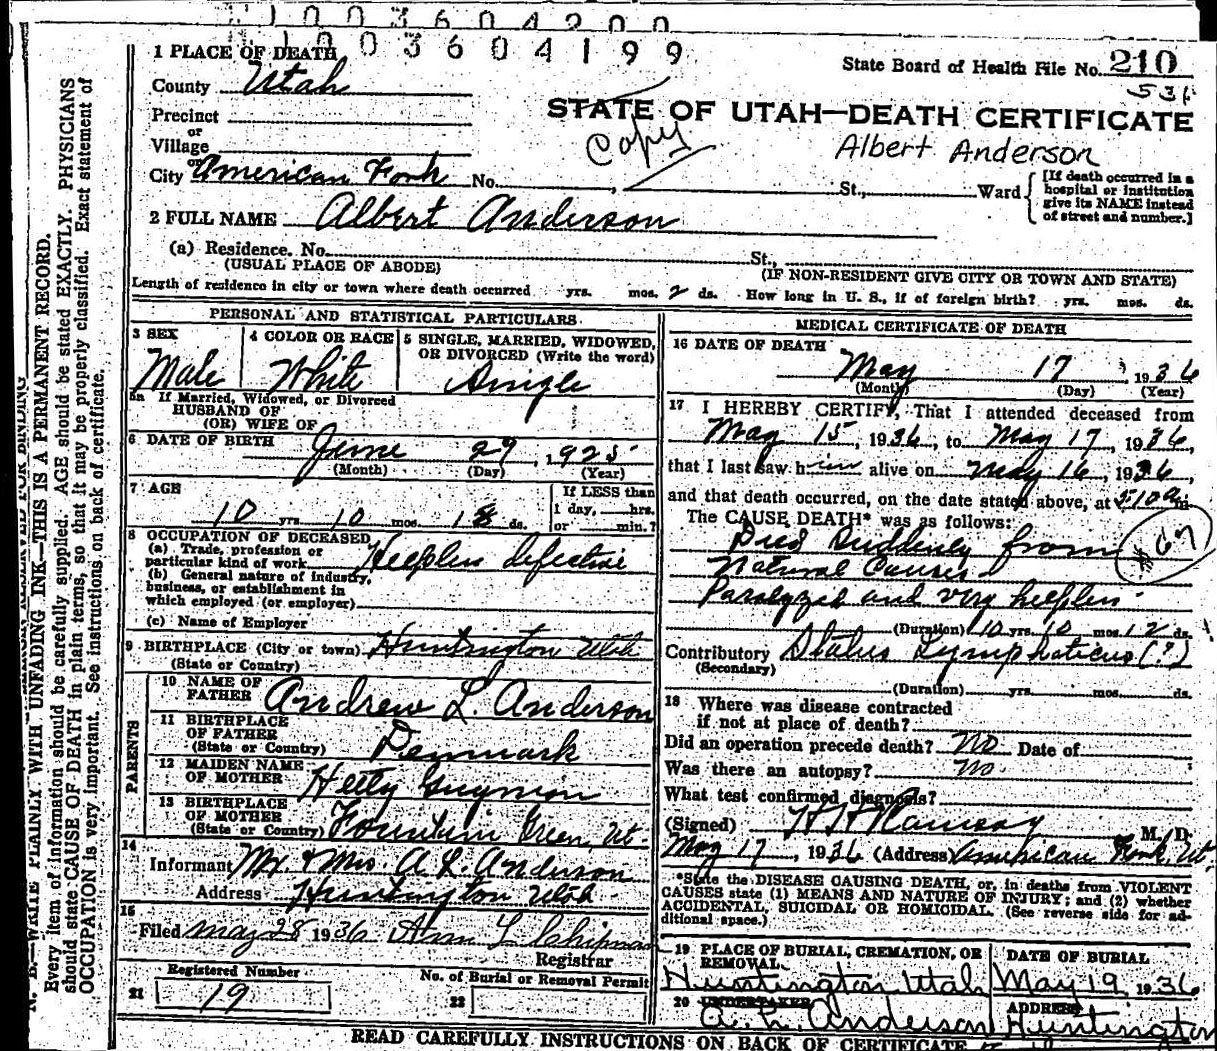 1003604200
1003604199
1 PLACE OF DEATH
State Board of Health File No. 210
536
County Utah
STATE OF UTAH—DEATH CERTIFICATE
Precinct
Copy
Albert Anderson
or
Village
or
City American Fork No. , St., Ward
[If death occurred in a hospital or institution give its NAME instead of street and number.]
2 FULL NAME Albert Anderson
(a) Residence. No. St.,
(USUAL PLACE OF ABODE) (IF NON-RESIDENT GIVE CITY OR TOWN AND STATE)
Length of residence in city or town where death occurred yrs. mos. 2 ds. How long in U. S., if of foreign birth? yrs. mos. ds.
PERSONAL AND STATISTICAL PARTICULARS
3 SEX 4 COLOR OR RACE 5 SINGLE, MARRIED, WIDOWED,
OR DIVORCED (Write the word)
Male White Single
5a If Married, Widowed, or Divorced
HUSBAND OF
(OR) WIFE OF
6 DATE OF BIRTH June 29, 1925
(Month) (Day) (Year)
7 AGE If LESS than
1 day, hrs.
10 yrs. 10 mos. 18 ds. or min.?
8 OCCUPATION OF DECEASED
(a) Trade, profession or
particular kind of work Helpless defective
(b) General nature of industry,
business, or establishment in
which employed (or employer)
(c) Name of Employer
9 BIRTHPLACE (City or town) Huntington Utah
(State or Country)
PARENTS
10 NAME OF
FATHER Andrew L. Anderson
11 BIRTHPLACE
OF FATHER
(State or Country) Denmark
12 MAIDEN NAME
OF MOTHER Hetty Guymon
13 BIRTHPLACE
OF MOTHER
(State or Country) Fountain Green, Ut.
14
Informant Mr. & Mrs. A. L. Anderson
Address Huntington Utah
15
Filed May 28 1936 L Chipman
Registrar
Registered Number No. of Burial or Removal Permit
21 19 22
MEDICAL CERTIFICATE OF DEATH
16 DATE OF DEATH
May 17, 1936
(Month) (Day) (Year)
17 I HEREBY CERTIFY, That I attended deceased from
May 15, 1936, to May 17, 1936
that I last saw him alive on May 16, 1936,
and that death occurred, on the date stated above, at 5:10 a m
The CAUSE DEATH* was as follows:
Died Suddenly from
Natural Causes
Paralyzed and very helpless
(Duration) 10 yrs. 10 mos. 12 ds.
Contributory Status Lymphaticus (?)
(Secondary)
(Duration) yrs. mos. ds.
18 Where was disease contracted
if not at place of death?
Did an operation precede death? No Date of
Was there an autopsy? No
What test confirmed diagnosis?
(Signed) M. D.
May 17, 1936 (Address) American Fork, Ut.
*State the DISEASE CAUSING DEATH, or, in deaths from VIOLENT
CAUSES state (1) MEANS AND NATURE OF INJURY; and (2) whether
ACCIDENTAL, SUICIDAL OR HOMICIDAL. (See reverse side for ad-
ditional space.)
19 PLACE OF BURIAL, CREMATION, OR REMOVAL DATE OF BURIAL
Huntington Utah May 19 1936
20 UNDERTAKER ADDRESS
A. L. Anderson Huntington
READ CAREFULLY INSTRUCTIONS ON BACK OF CERTIFICATE
N. B.—WRITE PLAINLY WITH UNFADING INK—THIS IS A PERMANENT RECORD.
Every item of information should be carefully supplied. AGE should be stated EXACTLY. PHYSICIANS
should state CAUSE OF DEATH in plain terms, so that it may be properly classified. Exact statement of
OCCUPATION is very important. See instructions on back of certificate.